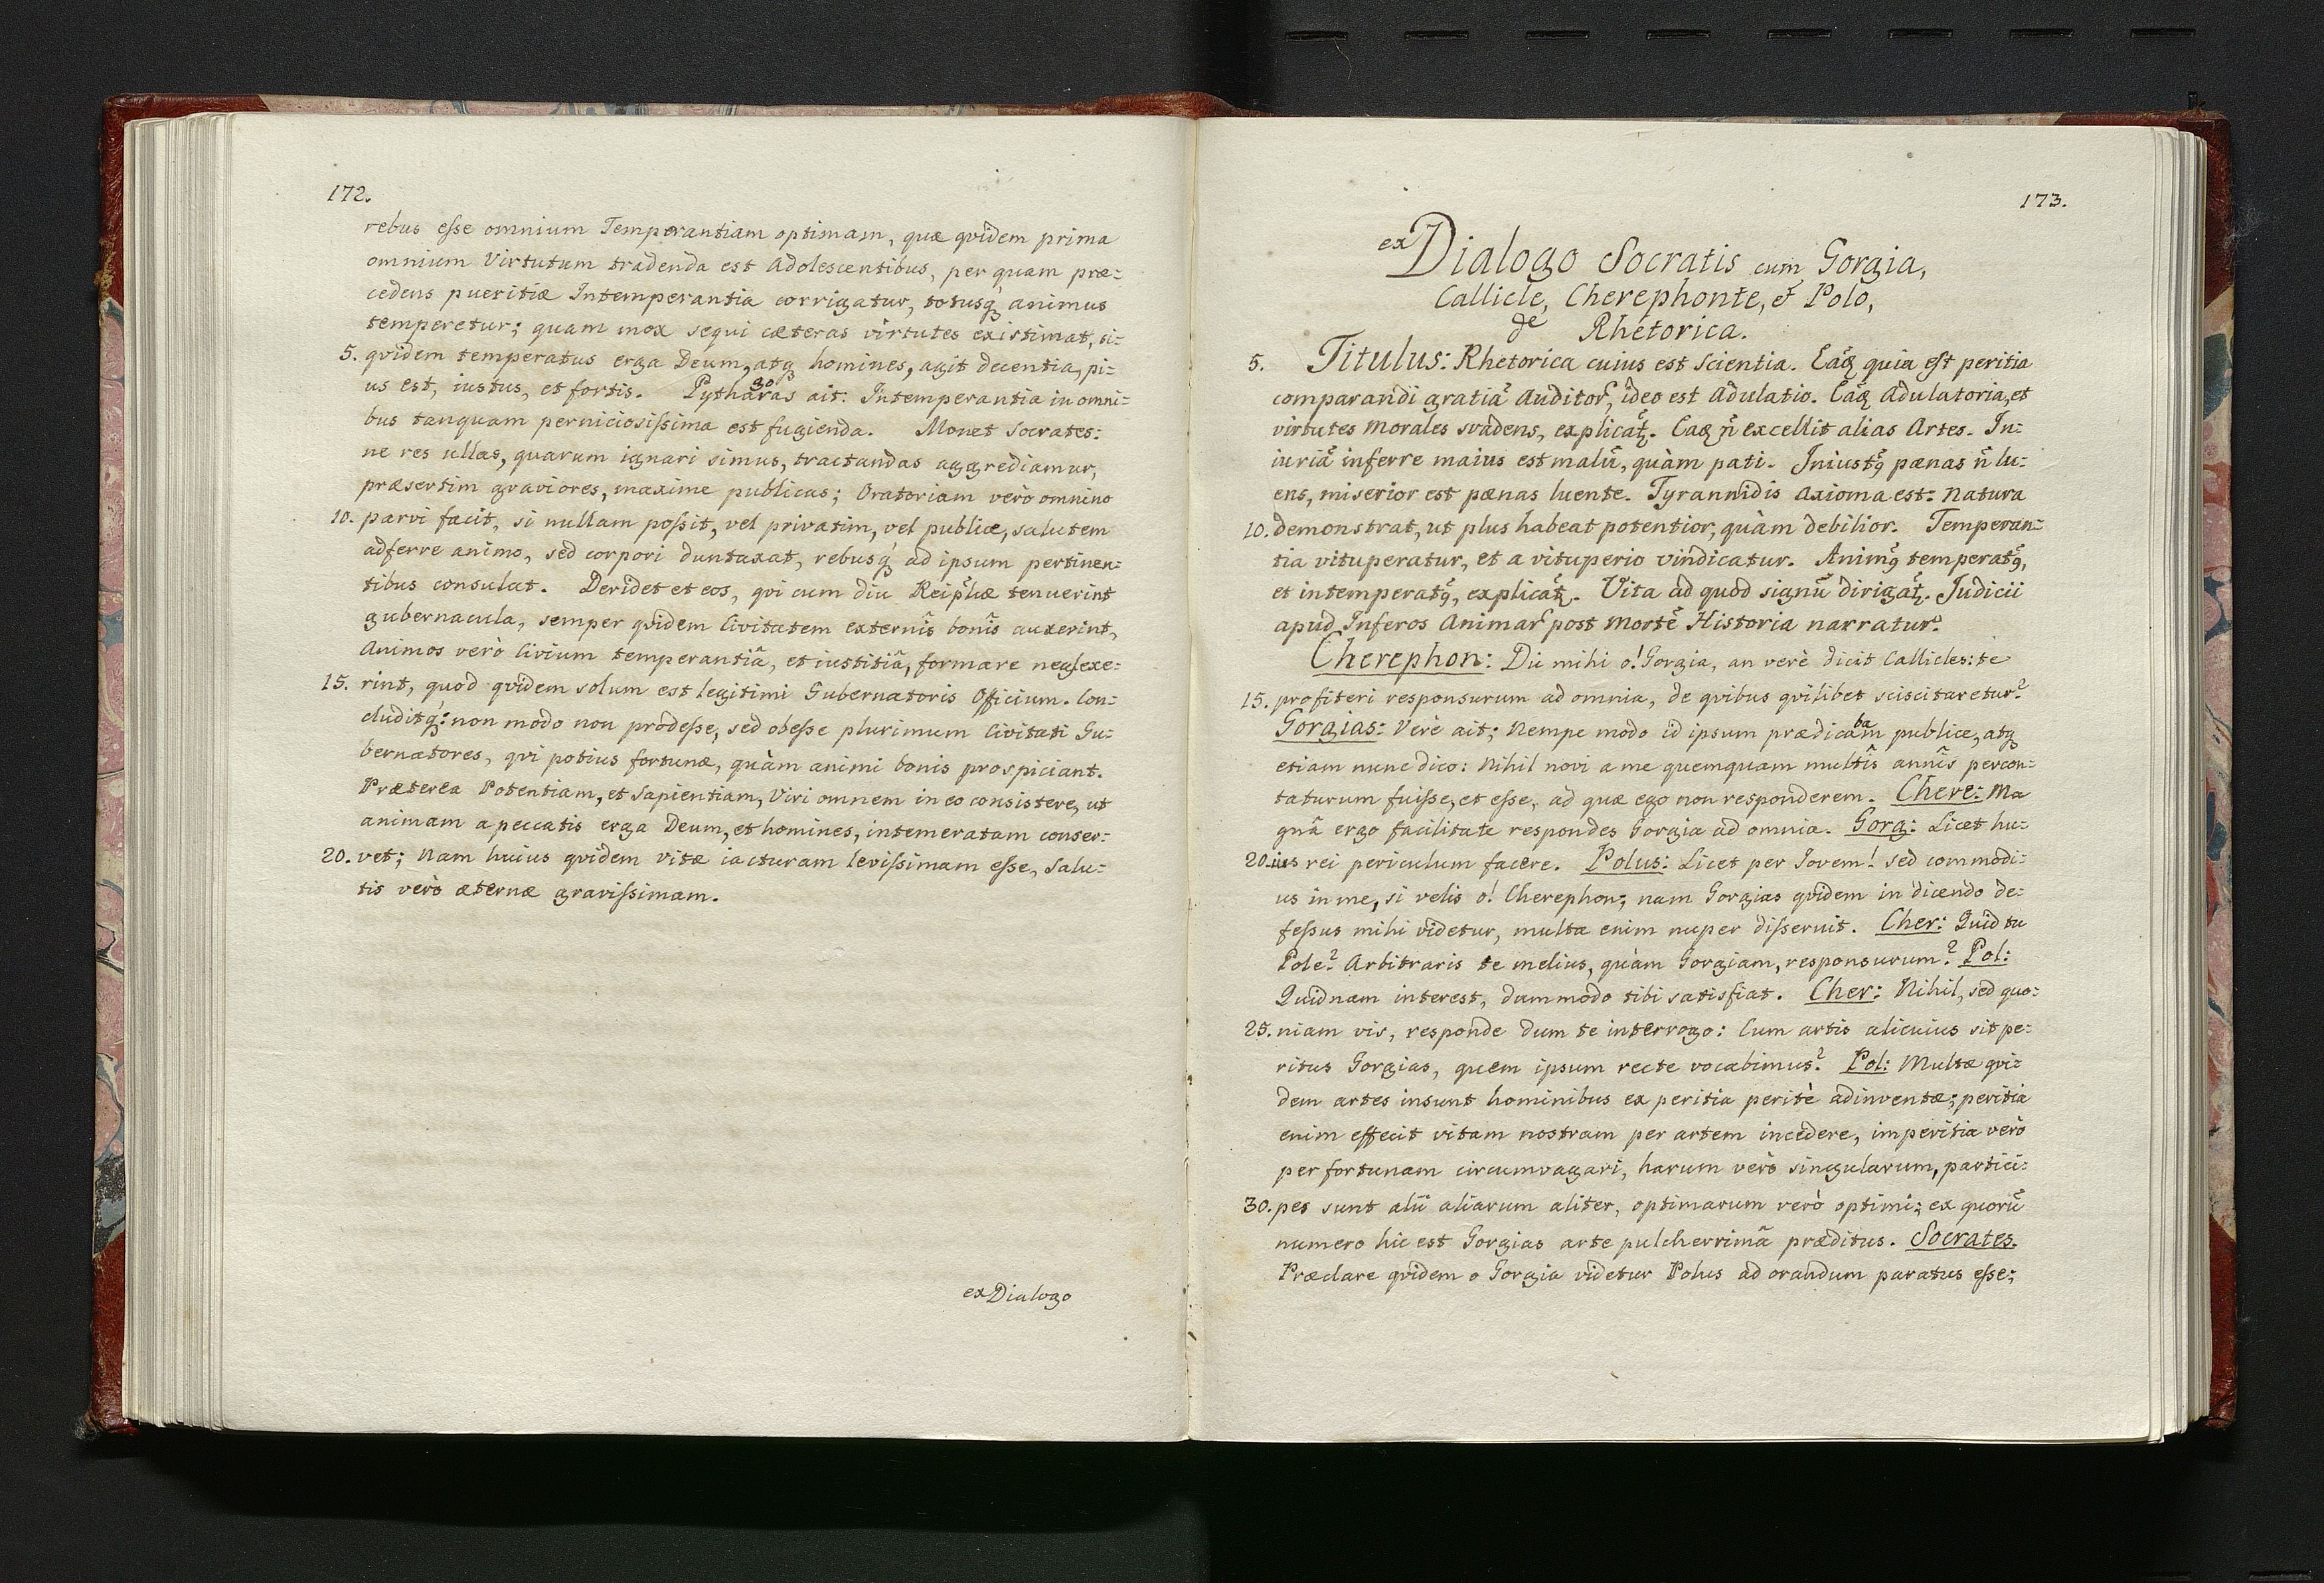 172.
rebus esse omnium Temperantiam optimam, quæ qvidem prima
omnium Virtutum tradenda est Adolescentibus, per quam præ=
cedens pueritiæ Intemperantia corrigatur, totusq́ animus
temperetur; quam mox sequi cæteras virtutes existimat, si=
5. qvidem temperatus erga Deum, atq homines, agit decentia, pi=
us est, iustus, et fortis. Pythagoras ait: Intemperantia in omni=
bus tanquam perniciosissima est fugienda. Monet Socrates:
ne res ullas, quarum ignari simus, tractandas aggrediamur,
præsertim graviores, maxime publicas; Oratoriam verò omnino
10. parvi facit, si nullam possit, vel privatim, vel publice, salutem
adferre animo, sed corpori duntaxat, rebusq́ ad ipsum pertinen=
tibus consulat. Deridet et eos, qvi cum diu Reip̃licæ tenuerint
gubernacula, semper qvidem Civitatem externis bonis auxerint,
Animos verò Civium temperantiâ, et iustitiâ, formare neglexe=
15. rint, quod qvidem solum est legitimi Gubernatoris Officium. Con=
cluditq́: non modo non prodesse, sed obesse plurimum Civitati Gu=
bernatores, qvi potius fortunæ, quàm animi bonis prospiciant.
Præterea Potentiam, et Sapientiam, Viri omnem in eo consistere, ut
animam a peccatis erga Deum, et homines, intemeratam conser=
20. vet; Nam huius qvidem vitæ iacturam levissimam esse, Salu=
tis verò æternæ gravissimam.
ex Dialogo
173.
ex Dialogo Socratis cum Gorgia,
Callicle, Cherephonte, et Polo,
de Rhetorica.
5. Titulus: Rhetorica cuius est Scientia. Eaq̃ quia est peritia
comparandi gratiã Auditor, ideo est Adulatio. Eaq̃ Adulatoria, et
virtutes Morales svadens, explicat̃. Eaq̃ ñ excellit alias Artes. In=
iuriã inferre maius est malũ, quàm pati. Iniustq̃ pænas ñ lu=
ens, miserior est pænas luente. Tyrannidis Axioma est: Natura
10. demonstrat, ut plus habeat potentior, quàm debilior. Temperan=
tia vituperatur, et a vituperio vindicatur. Animq̃ temperatq̃,
et intemperatq̃, explicat̃. Vita ad quod signũ dirigat̃. Judicii
apud Inferos Animar post Mortẽ Historia narratur.
Cherephon: Dic mihi o! Gorgia, an verè dicit Callicles: te
15. profiteri responsurum ad omnia, de qvibus qvilibet sciscitaretur?
Gorgias: Verè ait; Nempe modo id ipsum prædicabam publice, atq
etiam nunc dico: Nihil novi a me quemquam multis annis percon=
taturum fuisse, et esse, ad quæ ego non responderem. Chere: Ma
gnâ ergo facilitate respondes Gorgia ad omnia. Gorg: Licet hu=
20. ius rei periculum facere. Polus: Licet per Iovem! sed commodi=
us in me, si velis o! Cherephon; nam Gorgias qvidem in dicendo de=
fessus mihi videtur, multa enim nuper disseruit. Cher: Quid tu
Pole? Arbitraris te melius, quàm Gorgiam, responsurum? Pol:
Quidnam interest, dummodo tibi satisfiat. Cher: Nihil, sed quo=
25. niam vis, responde dum te interrogo: Cum artis alicuius sit pe=
ritus Gorgias, quem ipsum recte vocabimus? Pol: Multæ qvi=
dem artes insunt hominibus ex peritia peritè adinventæ; peritia
enim effecit vitam nostram per artem incedere, imperitia verò
per fortunam circumvagari, harum verò singularum, partici=
30. pes sunt alii aliarum aliter, optimarum verò optimi; ex quorũ
numero hic est Gorgias arte pulcherrimâ præditus. Socrates.
Præclare qvidem o Gorgia videtur Polus ad orandum paratus esse;